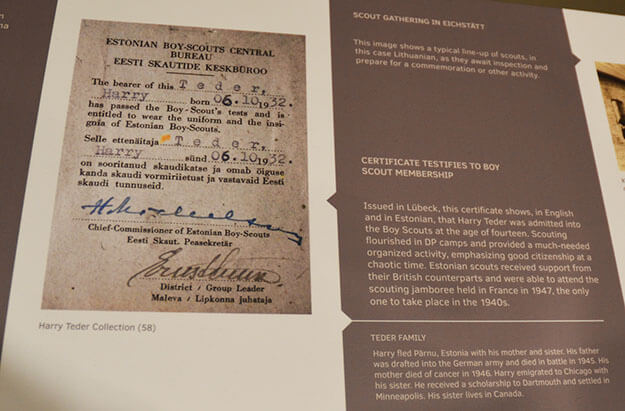 ESTONIAN BOY-SCOUTS CENTRAL
BUREAU
EESTI SKAUTIDE KESKBÜROO
The bearer of this Teder,
Harry born 06.10.1932.
has passed the Boy-Scout's tests and is
entitled to wear the uniform and the insi-
gnia of Estonian Boy-Scouts.
Selle ettenäitaja Teder,
Harry sünd. 06.10.1932.
on sooritanud skaudikatse ja omab õiguse
kanda skaudi vormiriietust ja vastavaid Eesti
skaudi tunnuseid.
Chief-Commissioner of Estonian Boy-Scouts
Eesti Skaut. Peasekretär
District / Group Leader
Maleva / Lipkonna juhataja
Harry Teder Collection (58)
SCOUT GATHERING IN EICHSTÄTT
This image shows a typical line-up of scouts, in
this case Lithuanian, as they await inspection and
prepare for a commemoration or other activity.
CERTIFICATE TESTIFIES TO BOY
SCOUT MEMBERSHIP
Issued in Lübeck, this certificate shows, in English
and in Estonian, that Harry Teder was admitted into
the Boy Scouts at the age of fourteen. Scouting
flourished in DP camps and provided a much-needed
organized activity, emphasizing good citizenship at a
chaotic time. Estonian scouts received support from
their British counterparts and were able to attend the
scouting jamboree held in France in 1947, the only
one to take place in the 1940s.
TEDER FAMILY
Harry fled Pärnu, Estonia with his mother and sister. His father
was drafted into the German army and died in battle in 1945. His
mother died of cancer in 1946. Harry emigrated to Chicago with
his sister. He received a scholarship to Dartmouth and settled in
Minneapolis. His sister lives in Canada.